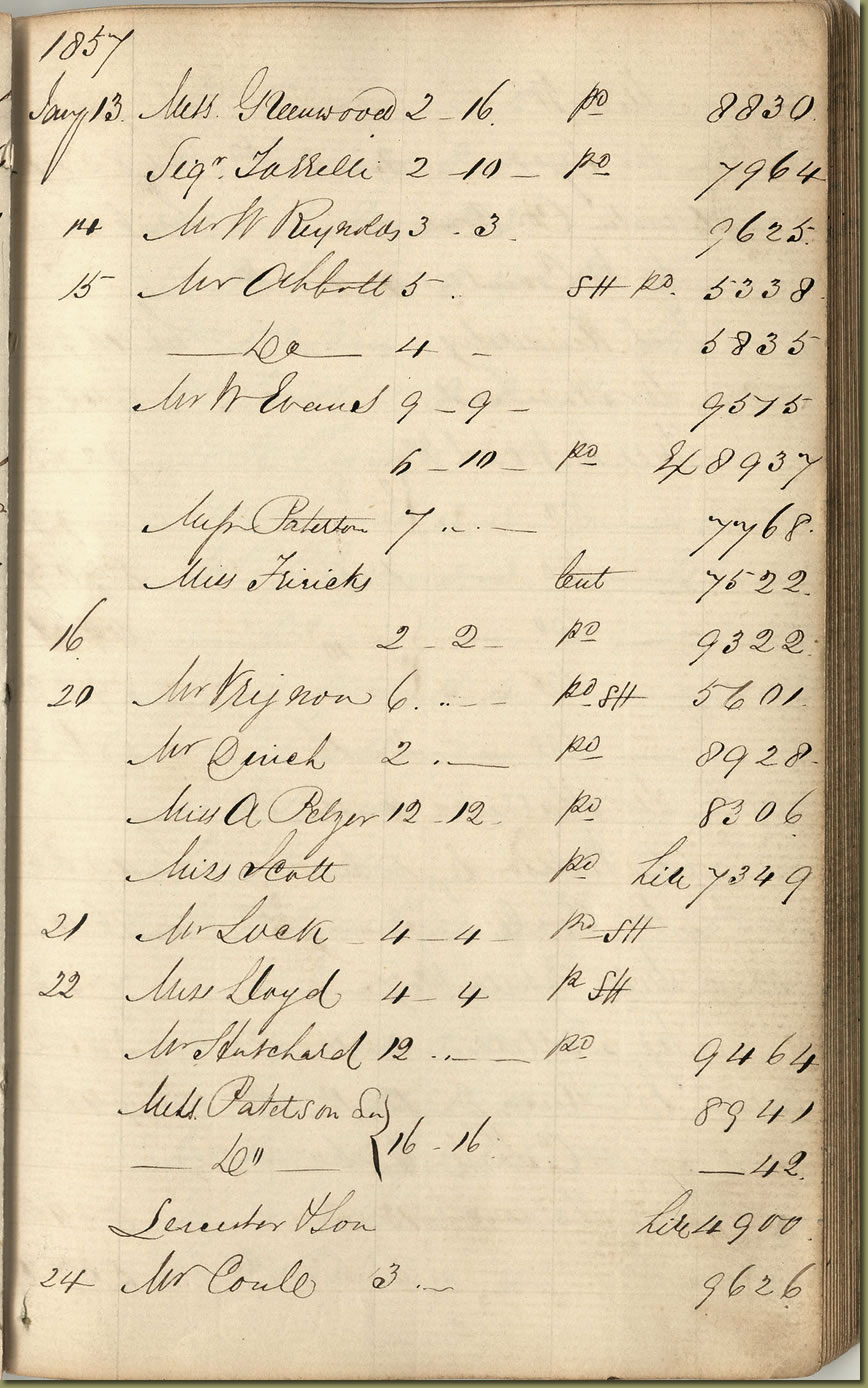 1857
Jany 13. Mess. Greenwood 2 - 16. pd 8830.
Sigr. 2 - 10 - pd 7964
14 Mr W Reynolds 3 . 3. 9625.
15 Mr Abbott 5 . SH pd. 5338.
— Do — 4 - 5835
Mr W Evans 9 - 9 - 9515
6 - 10 - pd Ex 8937
Messrs Paterson 7 .. — 7768.
Miss lent 7522.
16 2 - 2 - pd 9322.
20 Mr 6. .. — pd SH 5601.
Mr 2 . — pd 8928.
Miss A Pelzer 12 - 12. pd 8306
Miss Scott pd hire 7349
21 Mr Lock - 4 - 4 - pd SH
22 Miss Lloyd 4 - 4 p SH
Mr 12 .. — pd 9464
Mess. Paterson } 16 - 16. 8941
— Do " — — 42.
Leicester & Son hire 4900.
24 Mr 3 .. 9626